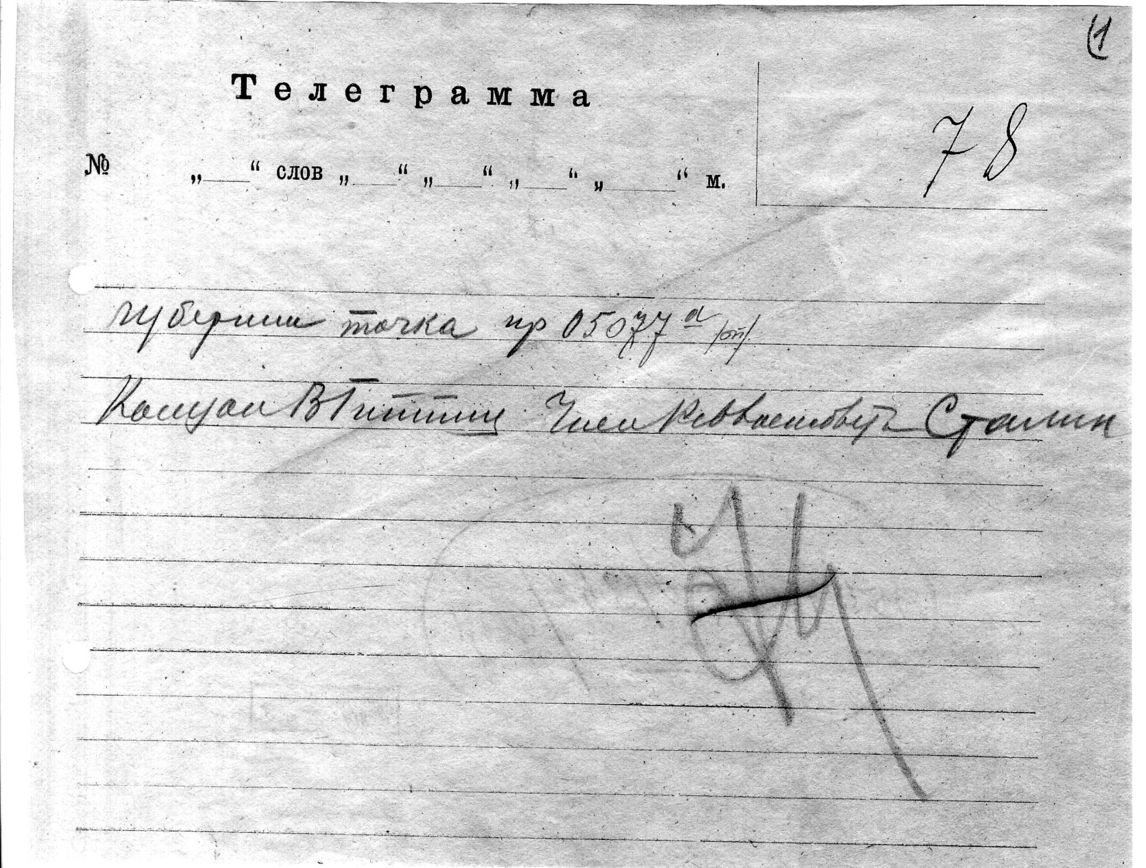 (1
Телеграмма
78
№ „ “ слов „ “ „ “ „ “ „ “ м.
губернии точка нр 05077 а /оп/.
ВГиттис Член Реввоенсовета Сталин